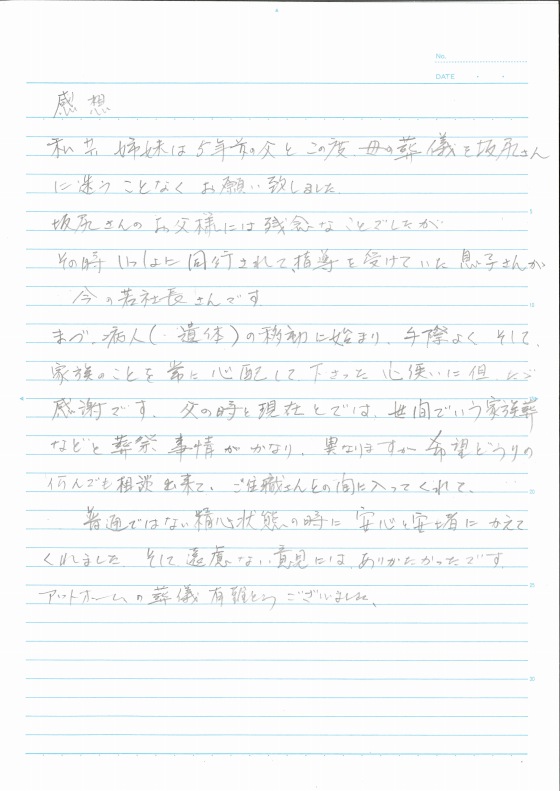 No.
DATE
感想
私共 姉妹は5年前の父と この度、母の葬儀を坂尻さん
に迷うことなく お願い致しました。
坂尻さんの お父様には残念なことでしたが
その時 いっしょに同行されて、指導を受けていた 息子さんが
今の若社長さんです
まづ、病人(・遺体)の移動に始まり、手際よく そして、
家族のことを 常に 心配して 下さった 心遣いに但
感謝です。 父の時と現在とでは、世間でいう家族葬
などと 葬祭 事情が かなり、異なりますが 希望どうりの
何んでも相談 出来て、ご住職さんとの間に入ってくれて、
普通ではない精心状態の時に 安心と安堵に かえて
くれました そして 遠慮ない意見には、ありがたかったです。
アットホームの葬儀 有難とうございました。
5
10
20
25
30